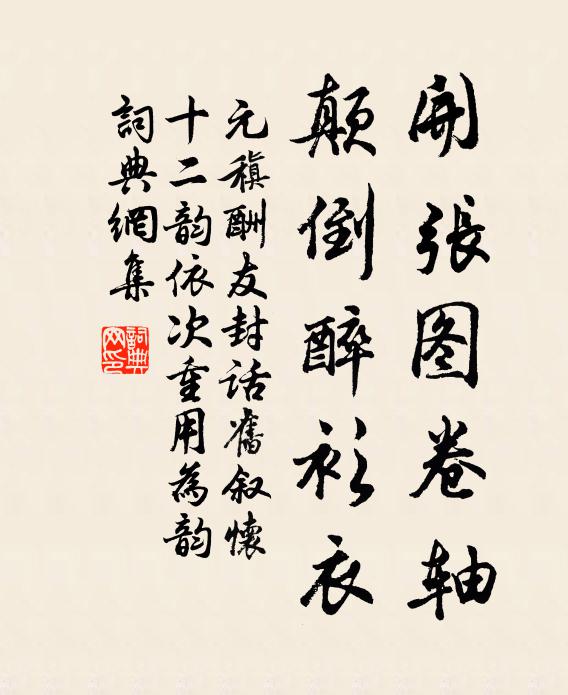 開張图卷軸
顛倒醉衫衣
元稹酬友封話舊叙懷
十二韵依次重用為韵
詞典網集
詞典网印